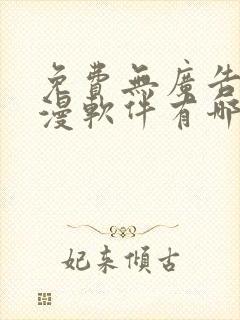 免費無廣告
漫軟件有哪
妃来傾古